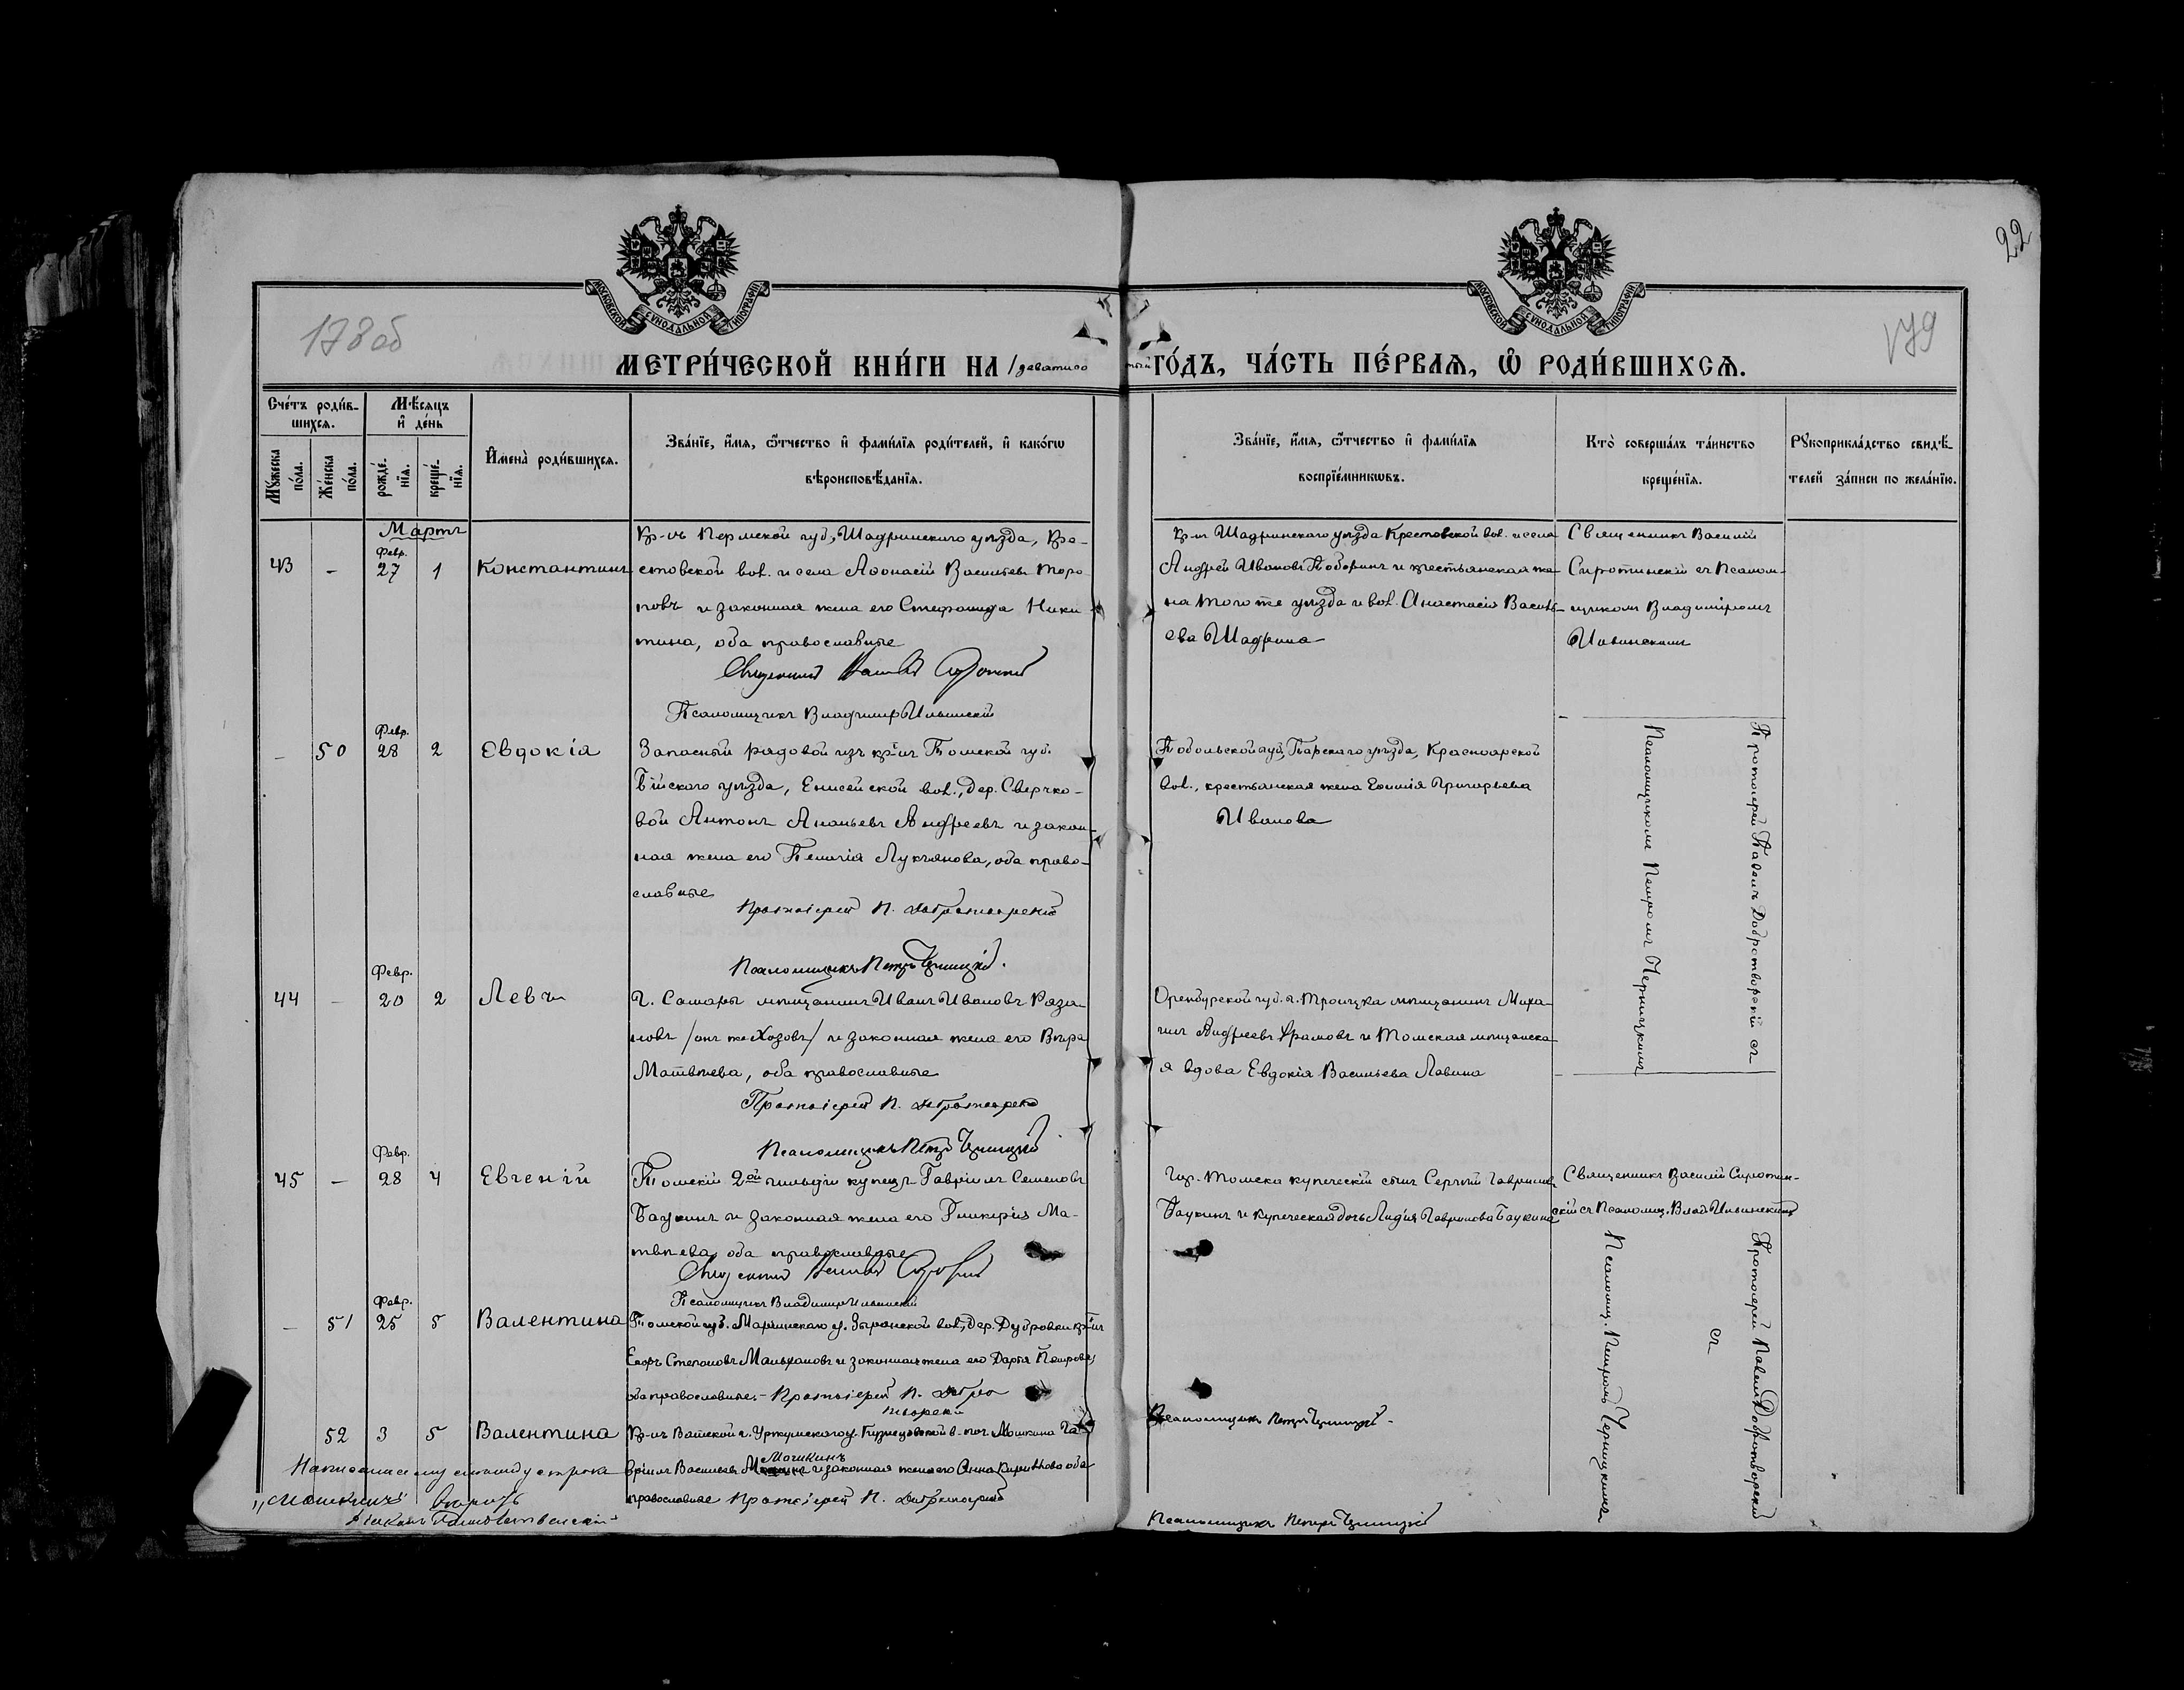 22
МОСКОВСКОЙ СѴНОДАЛЬНОЙ ТИПОГРАФІИ
МОСКОВСКОЙ СѴНОДАЛЬНОЙ ТИПОГРАФІИ
178об
179
МЕТРИ́ЧЕСКОЙ КНИ́ГИ НА
ГО́ДЪ, ЧА́СТЬ ПЕ́РВАѦ, Ѿ РОДИ́ВШИХСѦ.
Сче́тъ роди́в-
шихсѧ.
Мꙋ́жеска по́ла.
Же́нска по́ла.
Мѣ́сѧцъ
и҆ де́нь
рожде́-
нїѧ.
креще́-
нїѧ.
И҆мена̀ роди́вшихсѧ.
Зва́нїе, и҆́мѧ, ѻ҆́тчество и҆ фами́лїѧ роди́телей, и҆ како́гѡ
вѣроисповѣ́данїѧ.
Зва́нїе, и҆́мѧ, ѻ҆́тчество и҆ фами́лїѧ
воспрїе́мникѡвъ.
Кто̀ соверша́лъ та́инство
креще́нїѧ.
Рꙋкоприкла́дство свидѣ́-
телей за́писи по жела́нїю.
Мартъ
43 – Февр. 27 1 Константинъ
Кр-нъ Пермской губ., Шадринскаго уѣзда, Кре-
стовской вол. и села Аѳонасій Васильевъ Торо
повъ и законная жена его Стефанида Ники
тина, оба православные
Священникъ Василій Сиротинскій
Псаломщикъ Владимиръ Ильинскій
Кр-нъ Шадринскаго уѣзда Крестовской вол. и села
Андрей Ивановъ Поборинъ и крестьянская же-
на того же уѣзда и вол. Анастасія Василь-
ева Шадрина
Священникъ Василій
Сиротинскій съ Псалом-
щикомъ Владиміромъ
Ильинскимъ
– 50 Февр. 28 2 Евдокія
Запасный рядовой изъ кр-нъ Томской губ.
Бійскаго уѣзда, Енисейской вол., дер. Сверчко-
вой Антонъ Ананьевъ Андреевъ и закон-
ная жена его Пелагія Лукьянова, оба право-
славные
Протоіерей П. Добротворскій
Псаломщикъ Петръ Черницкій.
Тобольской губ., Тарскаго уѣзда, Красноярской
вол., крестьянская жена Евѳимія Григорьева
Иванова
Протоіерей Павелъ Добротворскій съ
Псаломщикомъ Петромъ Черницкимъ
44 – Февр. 20 2 Левъ
г. Самары мѣщанинъ Иванъ Ивановъ Ряза-
новъ /онъ же Хозовъ/ и законная жена его Вѣра
Матвѣева, оба православные
Протоіерей П. Добротворскій
Псаломщикъ Петръ Черницкій
Оренбургской губ. г. Троицка мѣщанинъ Миха-
илъ Андреевъ Храмовъ и Томская мѣщанска-
я вдова Евдокія Васильева Лавина
45 – Февр. 28 4 Евгеній
Томскій 2ой гильдіи купецъ Гавріилъ Семеновъ
Баукинъ и законная жена его Гликерія Ма-
твѣева, оба православные
Священникъ Василій Сиротинскій
Псаломщикъ Владимиръ Ильинскій
Гор. Томска купеческій сынъ Сергѣй Гавриловъ
Баукинъ и купеческая дочь Лидія Гаврилова Баукина
Священникъ Василій Сиротин-
скій съ Псаломщ. Влад. Ильинскимъ
– 51 Февр. 25 5 Валентина
Томской губ. Маріинскаго у. Зырянской вол., дер. Дубровки кр-нъ
Егоръ Степановъ Мальхановъ и законная жена его Дарья Петрова,
оба православные. – Протоіерей П. Добро
творскій
Псаломщикъ Петръ Черницкій –
Протоіерей Павелъ Добротворскій
съ
Псаломщ. Петромъ Черницкимъ
52 3 5 Валентина
Кр-нъ Вятской г. Уржумскаго у. в. поч. Мошкина Га
вріилъ Васильевъ Мошкинъ и законная жена его Анна оба
православные Протоіерей П. Добротворскій
Псаломщикъ Петръ Черницкій
Написанное между строкъ
„Мошкинъ" вѣрить
Діаконъ